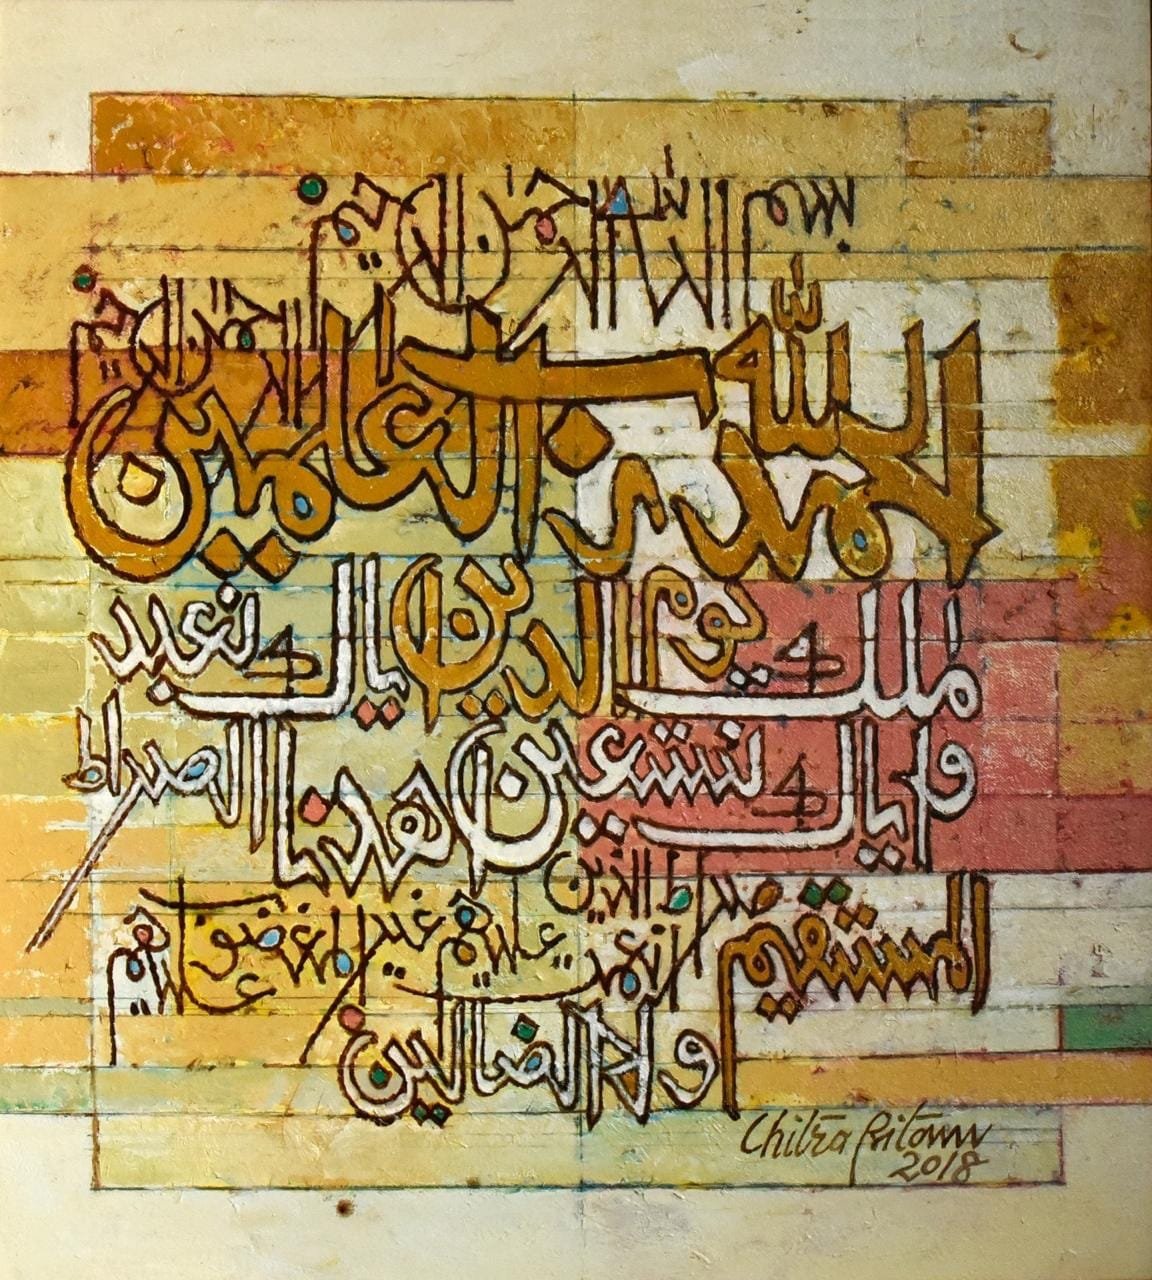 بسم الله الرحمن الرحيم
الحمد لله رب العلمين الرحمن الرحيم
ملك يوم الدين ياك نعبد
واياك نستعين هدنا الصراط
المستقيم صراط الذين انعمت عليهم غير المغضوب عليهم
ولا الضالين
Chitra
2018